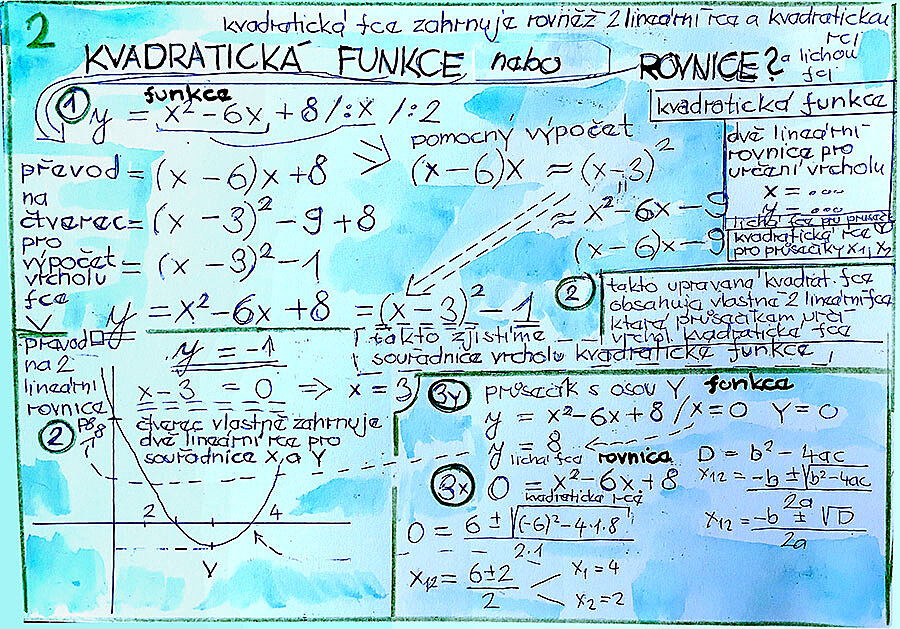 2
kvadratická fce zahrnuje rovněž 2 lineární rce a kvadratickou
rci
a lichou
fci
KVADRATICKÁ FUNKCE nebo ROVNICE?
kvadratická funkce
1 funkce
y = x² - 6x + 8 /:x /:2
pomocný výpočet
převod = (x - 6)x + 8
(x - 6)x ≈ (x - 3)²
na
čtverec = (x - 3)² - 9 + 8
≈ x² - 6x - 9
pro
výpočet = (x - 3)² - 1
(x - 6)x - 9
vrcholu
fce
y = x² - 6x + 8 = (x - 3)² - 1
dvě lineární
rovnice pro
určení vrcholu
x = ...
y = ...
lichá fce pro průseč.
kvadratická rce
pro průsečíky x1, x2
2
takto upravaná kvadrat. fce
obsahuja vlastna 2 lineární fce
která průsečíkam určí
vrchol kvadratická fce
takto zjistíme
souřadnice vrcholu kvadratické funkce
převod
na 2
lineární
rovnice
2
y = -1
x - 3 = 0 => x = 3
čtverec vlastně zahrnuje
dvě lineární rce pro
souřadnice X, a Y
P8
8
2
4
V
3y průsečík s osou Y funkce
y = x² - 6x + 8 / x = 0 Y = 0
y = 8
lichá fce rovnica
3x 0 = x² - 6x + 8
kvadratická rce
D = b² - 4ac
x12 = -b ± √b² - 4ac
2a
0 = 6 ± √(-6)² - 4·1·8
2·1
x12 = -b ± √D
2a
x12 = 6 ± 2
2
x1 = 4
x2 = 2